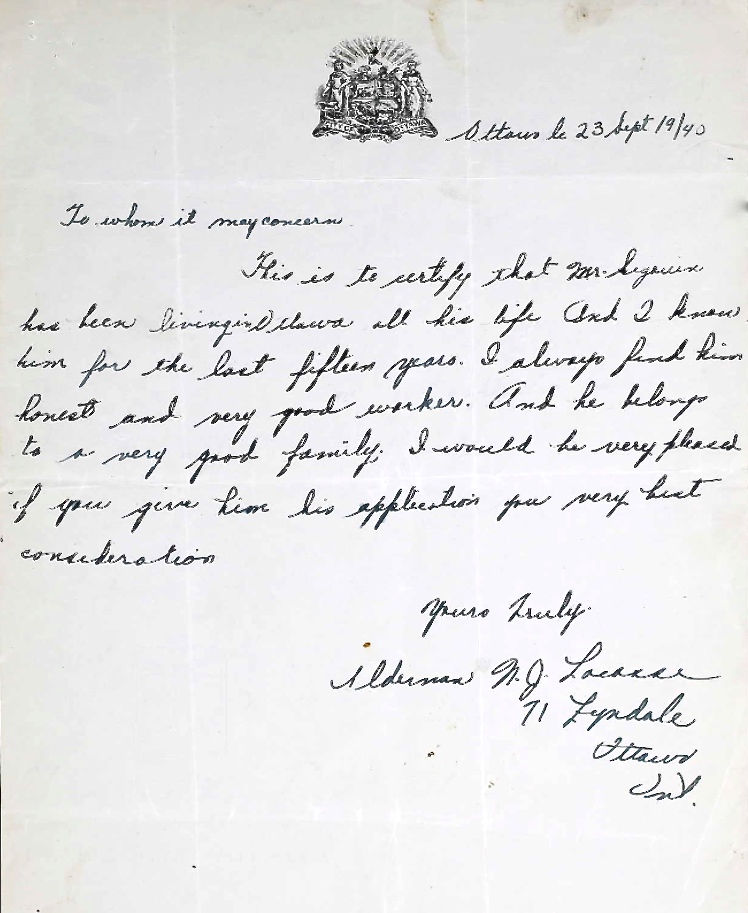 CITY OF OTTAWA
Ottawa le 23 Sept 19/40
To whom it may concern
This is to certify that Mr. Seguin
has been living in Ottawa all his life And I know
him for the last fifteen years. I always find him
honest and very good worker. And he belongs
to a very good family. I would be very pleased
if you give him his application you very best
consideration
Yours Truly.
Alderman N. J. Lacasse
71 Lyndale
Ottawa
Ont.